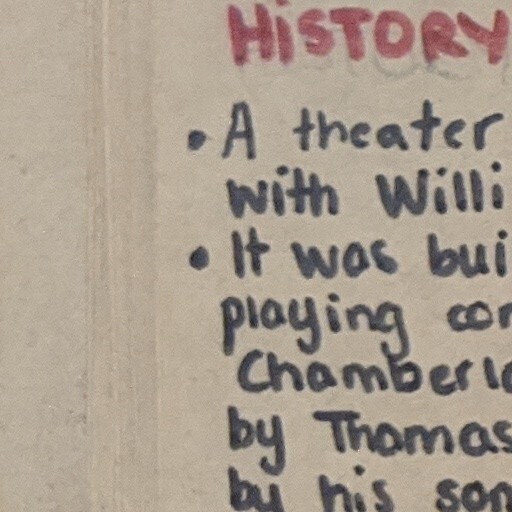 HiSTORY
• A theater
with Willi
• It was bui
playing com
Chamberla
by Thomas
by his son